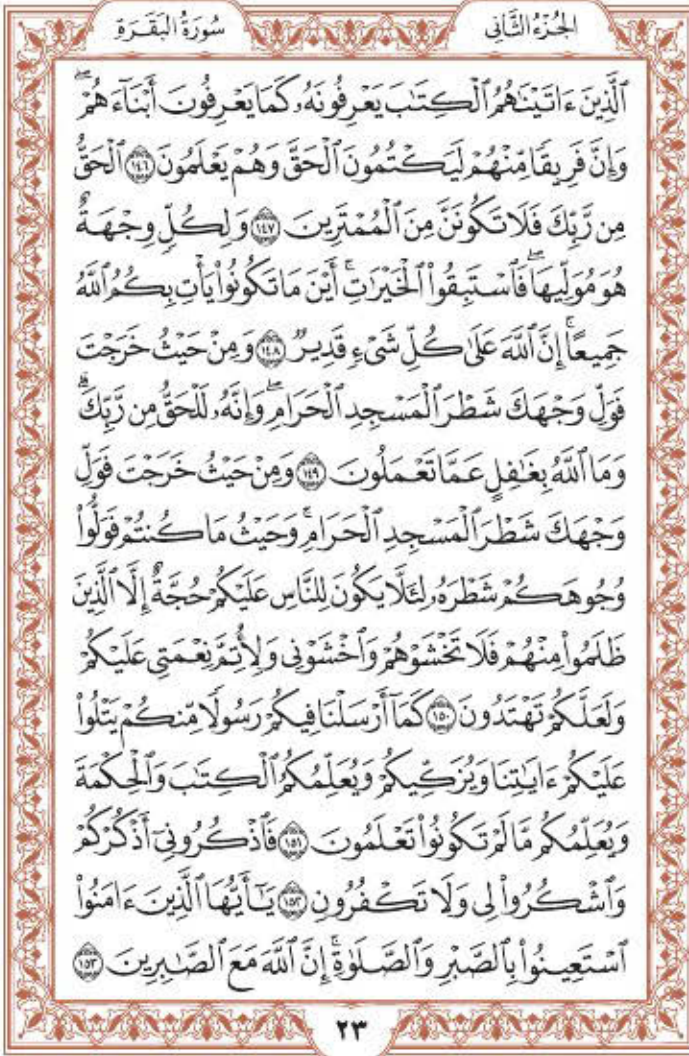 الجُزْءُ الثَّانِي
سُورَةُ البَقَرَةِ
ٱلَّذِينَ ءَاتَيۡنَٰهُمُ ٱلۡكِتَٰبَ يَعۡرِفُونَهُۥ كَمَا يَعۡرِفُونَ أَبۡنَآءَهُمۡۖ
وَإِنَّ فَرِيقٗا مِّنۡهُمۡ لَيَكۡتُمُونَ ٱلۡحَقَّ وَهُمۡ يَعۡلَمُونَ ١٤٦ ٱلۡحَقُّ
مِن رَّبِّكَ فَلَا تَكُونَنَّ مِنَ ٱلۡمُمۡتَرِينَ ١٤٧ وَلِكُلّٖ وِجۡهَةٌ
هُوَ مُوَلِّيهَاۖ فَٱسۡتَبِقُواْ ٱلۡخَيۡرَٰتِۚ أَيۡنَ مَا تَكُونُواْ يَأۡتِ بِكُمُ ٱللَّهُ
جَمِيعًاۚ إِنَّ ٱللَّهَ عَلَىٰ كُلِّ شَيۡءٖ قَدِيرٞ ١٤٨ وَمِنۡ حَيۡثُ خَرَجۡتَ
فَوَلِّ وَجۡهَكَ شَطۡرَ ٱلۡمَسۡجِدِ ٱلۡحَرَامِۖ وَإِنَّهُۥ لَلۡحَقُّ مِن رَّبِّكَۗ
وَمَا ٱللَّهُ بِغَٰفِلٍ عَمَّا تَعۡمَلُونَ ١٤٩ وَمِنۡ حَيۡثُ خَرَجۡتَ فَوَلِّ
وَجۡهَكَ شَطۡرَ ٱلۡمَسۡجِدِ ٱلۡحَرَامِۚ وَحَيۡثُ مَا كُنتُمۡ فَوَلُّواْ
وُجُوهَكُمۡ شَطۡرَهُۥ لِئَلَّا يَكُونَ لِلنَّاسِ عَلَيۡكُمۡ حُجَّةٌ إِلَّا ٱلَّذِينَ
ظَلَمُواْ مِنۡهُمۡ فَلَا تَخۡشَوۡهُمۡ وَٱخۡشَوۡنِي وَلِأُتِمَّ نِعۡمَتِي عَلَيۡكُمۡ
وَلَعَلَّكُمۡ تَهۡتَدُونَ ١٥٠ كَمَآ أَرۡسَلۡنَا فِيكُمۡ رَسُولٗا مِّنكُمۡ يَتۡلُواْ
عَلَيۡكُمۡ ءَايَٰتِنَا وَيُزَكِّيكُمۡ وَيُعَلِّمُكُمُ ٱلۡكِتَٰبَ وَٱلۡحِكۡمَةَ
وَيُعَلِّمُكُم مَّا لَمۡ تَكُونُواْ تَعۡلَمُونَ ١٥١ فَٱذۡكُرُونِيٓ أَذۡكُرۡكُمۡ
وَٱشۡكُرُواْ لِي وَلَا تَكۡفُرُونِ ١٥٢ يَٰٓأَيُّهَا ٱلَّذِينَ ءَامَنُواْ
ٱسۡتَعِينُواْ بِٱلصَّبۡرِ وَٱلصَّلَوٰةِۚ إِنَّ ٱللَّهَ مَعَ ٱلصَّٰبِرِينَ ١٥٣
٢٣